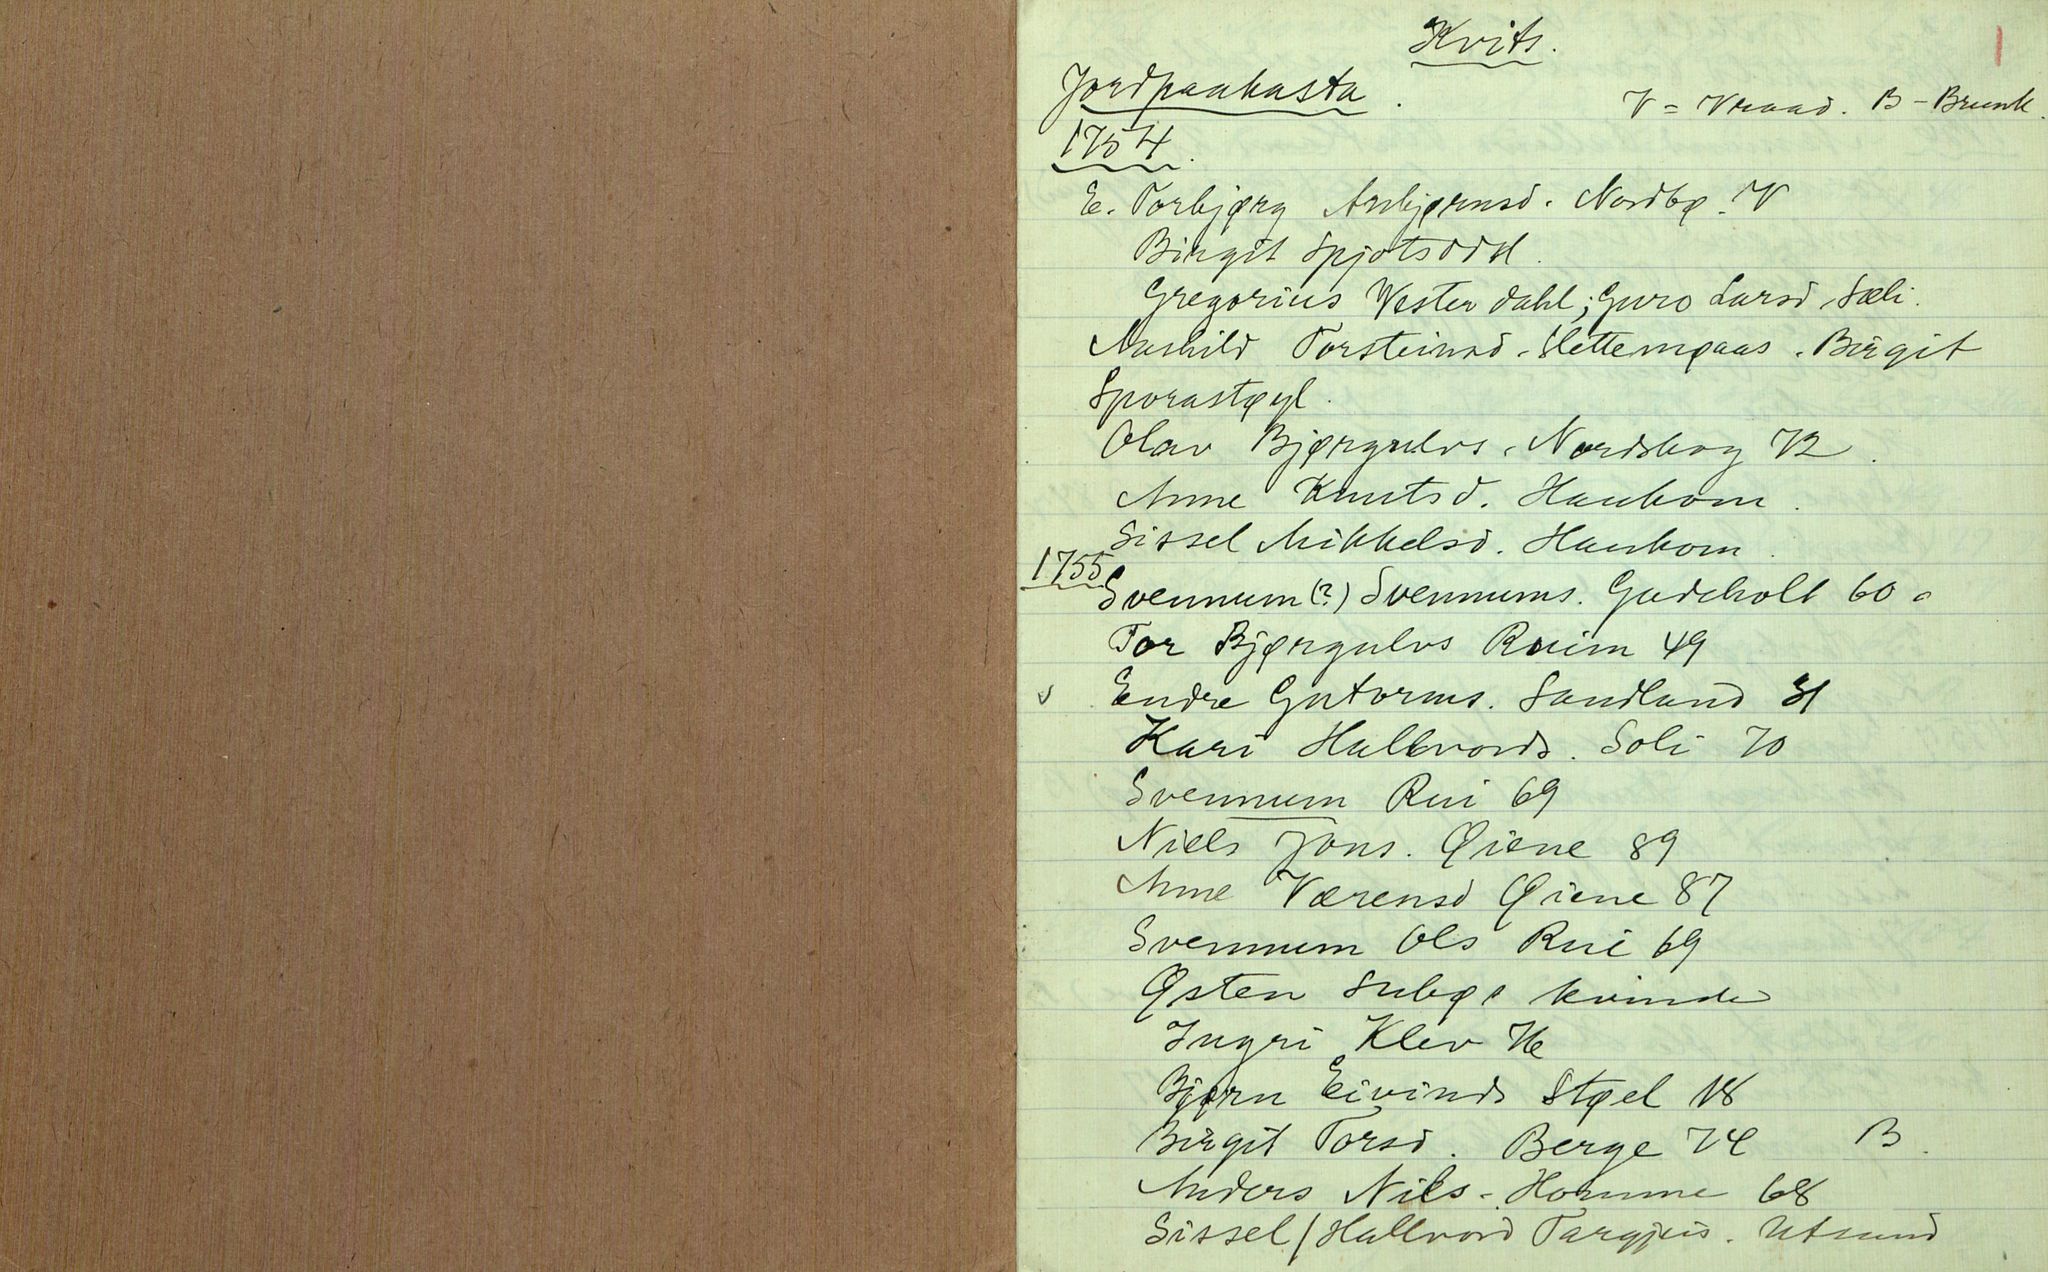 Kvits.
1
Jordpaakasta.
V = Vraad. B - Brunk.
1754.
E. Torbjørg Asbjørnsd. Nordbø. V
Birgit Spjotsodd.
Gregorius Vesterdahl; Guro Larsd Sæli.
Aashild Torsteinsd. Slettemøaas. Birgit
Sporastøyl.
Olav Bjørgulvs. Nordskog 72.
Anne Knutsd. Haukom.
Sissel Mikkelsd. Haukom.
1755
Svennum (?) Svennums. Gudeholt 60.
Tor Bjørgulvs Ruim 49
v Endre Gutorms. Sandland 31
Kari Hallvords. Soli 70
Svennum Rui 69
Niels Jons. Øiene 89
Anne Værensd Øiene 87
Svennum Ols Rui 69
Østen Subøs kvinde
Ingri Klev 76
Bjørn Eivinds Støel 18
Birgit Torsd. Berge 74 B.
Anders Nils. Homme 68
Sissel / Hallvord Targjeis. Utsund